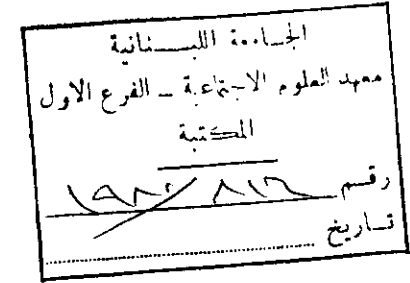 الجامعة اللبنانية
معهد العلوم الاجتماعية – الفرع الاول
المكتبة
رقم
تاريخ